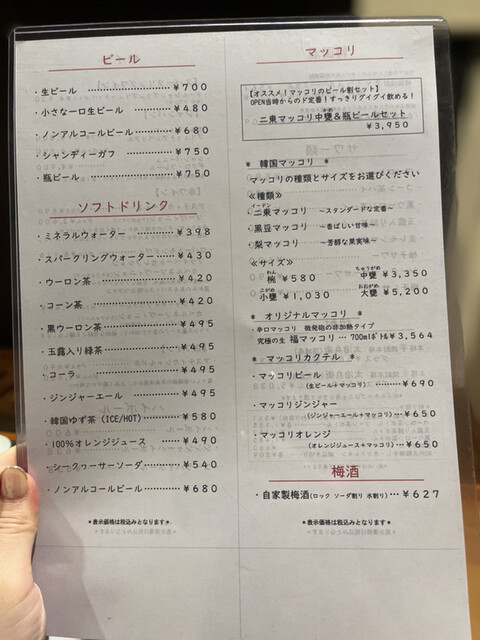 ビール
・生ビール ………………¥700
・小さな一口生ビール ……¥480
・ノンアルコールビール ……¥680
・シャンディーガフ ………¥750
・瓶ビール ………………¥750
ソフトドリンク
・ミネラルウォーター ………¥398
・スパークリングウォーター …¥430
・ウーロン茶 ………………¥420
・コーン茶 …………………¥420
・黒ウーロン茶 ……………¥495
・玉露入り緑茶 ……………¥495
・コーラ ……………………¥495
・ジンジャーエール …………¥495
・韓国ゆず茶 (ICE/HOT) ……¥580
・100%オレンジジュース ……¥490
・シークヮーサーソーダ ………¥540
・ノンアルコールビール ………¥680
*表示価格は税込みとなります*
マッコリ
【オススメ!マッコリのビール割セット】
OPEN当時からのド定番!すっきりグイグイ飲める!
二東マッコリ中甕&瓶ビールセット
¥3,950
* 韓国マッコリ *
マッコリの種類とサイズをお選びください
≪種類≫
イードン
・二東マッコリ ~スタンダードな定番~
・黒豆マッコリ ~香ばしい甘味~
・梨マッコリ ~芳醇な果実味~
≪サイズ≫
わん ちゅうがめ
椀 ¥580 中甕 ¥3,350
こがめ おおがめ
小甕 ¥1,030 大甕 ¥5,200
* オリジナルマッコリ *
・辛口マッコリ 微発砲の非加熱タイプ
究極の生 福マッコリ … 700ml1ボトル¥3,564
* マッコリカクテル *
・マッコリビール
(生ビール+マッコリ) ………¥690
・マッコリジンジャー
(ジンジャーエール+マッコリ) …¥650
・マッコリオレンジ
(オレンジジュース+マッコリ) …¥650
梅酒
・自家製梅酒(ロック ソーダ割り 水割り) …¥627
*表示価格は税込みとなります*